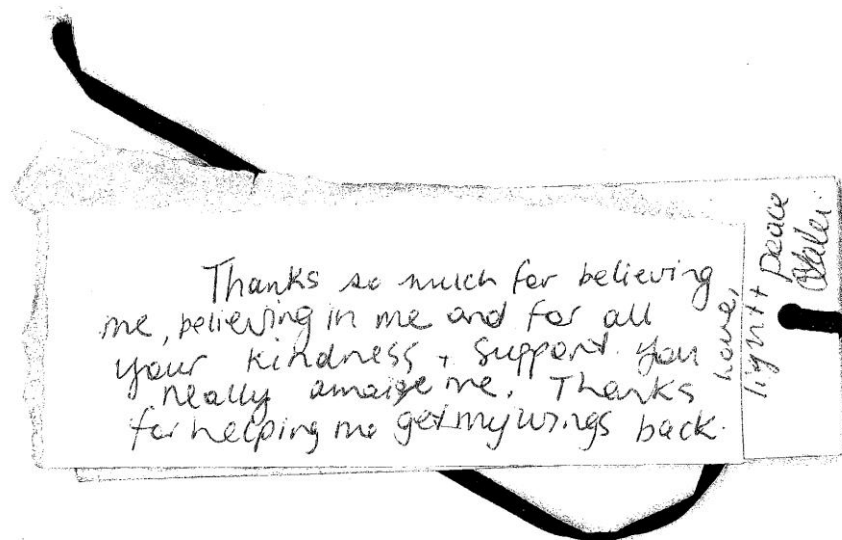 Thanks so much for believing
me, believing in me and for all
your kindness + support. You
really amaize me. Thanks
for helping me get my wings back.
Love,
light + peace